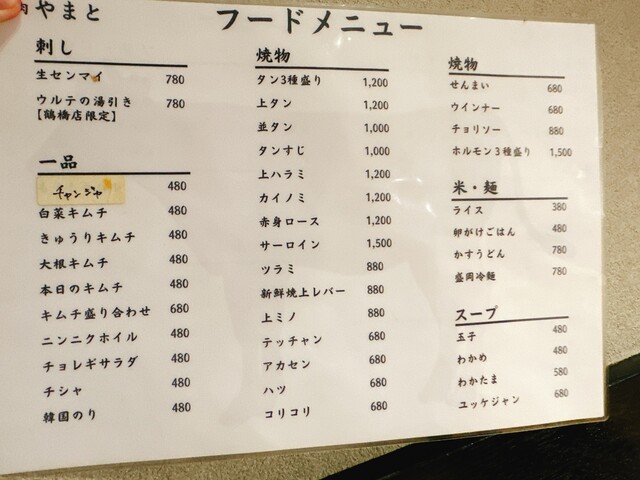 肉やまと
フードメニュー
刺し
生センマイ 780
ウルテの湯引き 780
【鶴橋店限定】
一品
チャンジャ 480
白菜キムチ 480
きゅうりキムチ 480
大根キムチ 480
本日のキムチ 480
キムチ盛り合わせ 680
ニンニクホイル 480
チョレギサラダ 480
チシャ 480
韓国のり 480
焼物
タン3種盛り 1,200
上タン 1,200
並タン 1,000
タンすじ 1,000
上ハラミ 1,200
カイノミ 1,200
赤身ロース 1,200
サーロイン 1,500
ツラミ 880
新鮮焼上レバー 880
上ミノ 880
テッチャン 680
アカセン 680
ハツ 680
コリコリ 680
焼物
せんまい 680
ウインナー 680
チョリソー 880
ホルモン3種盛り 1,500
米・麺
ライス 380
卵がけごはん 480
かすうどん 780
盛岡冷麺 780
スープ
玉子 480
わかめ 480
わかたま 580
ユッケジャン 680